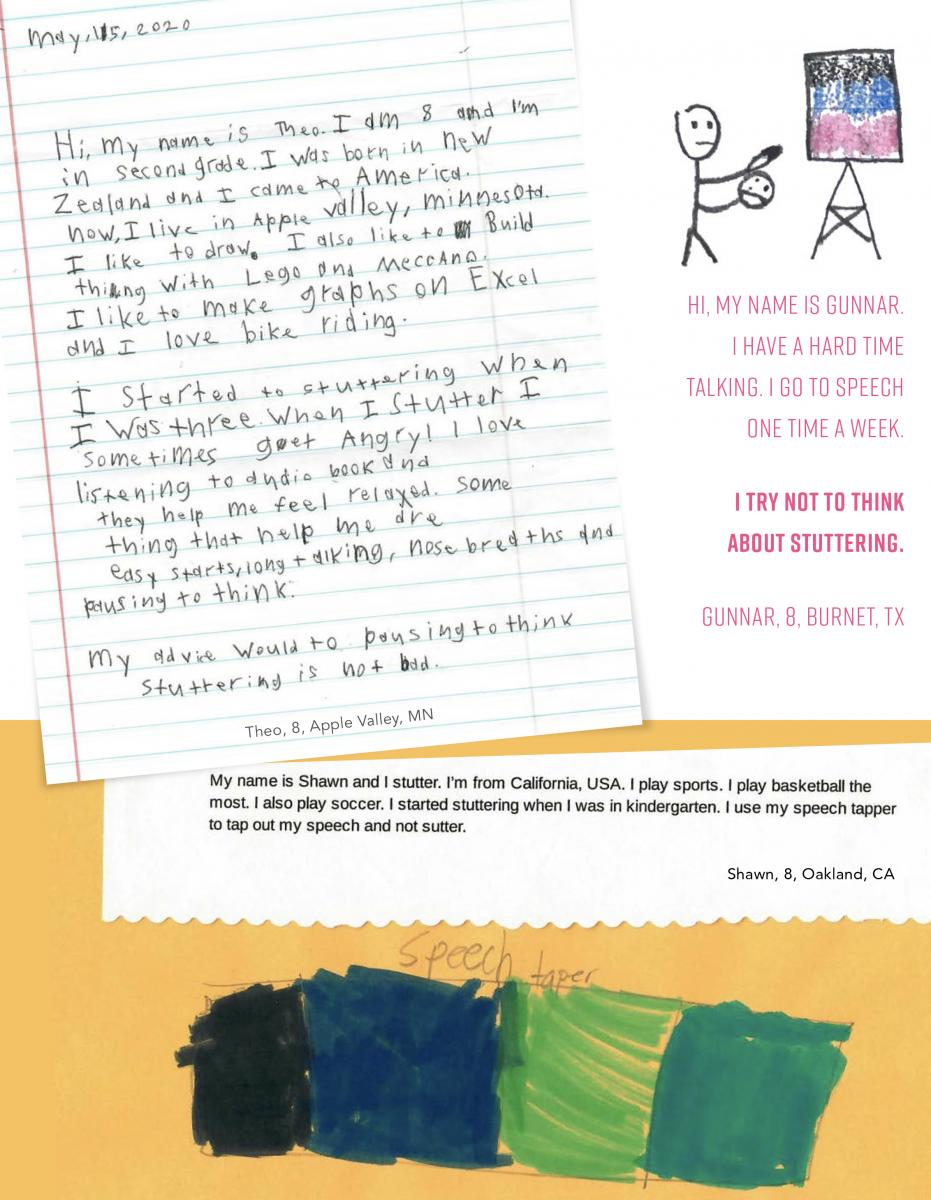 May, 15, 2020
Hi, my name is Theo. I am 8 and I'm
in second grade. I was born in new
Zealand and I came to America.
now, I live in Apple valley, minnesota.
I like to draw. I also like to Build
thing with Lego and Meccano.
I like to make graphs on Excel
and I love bike riding.
I started to stuttering when
I was three. When I stutter I
sometimes get Angry! I love
listening to audio book and
they help me feel relaxed. some
thing that help me are
easy starts, long talking, nose breaths and
pausing to think.
My advice would to pausing to think
stuttering is not bad.
Theo, 8, Apple Valley, MN
HI, MY NAME IS GUNNAR.
I HAVE A HARD TIME
TALKING. I GO TO SPEECH
ONE TIME A WEEK.
I TRY NOT TO THINK
ABOUT STUTTERING.
GUNNAR, 8, BURNET, TX
My name is Shawn and I stutter. I'm from California, USA. I play sports. I play basketball the
most. I also play soccer. I started stuttering when I was in kindergarten. I use my speech tapper
to tap out my speech and not sutter.
Shawn, 8, Oakland, CA
Speech taper